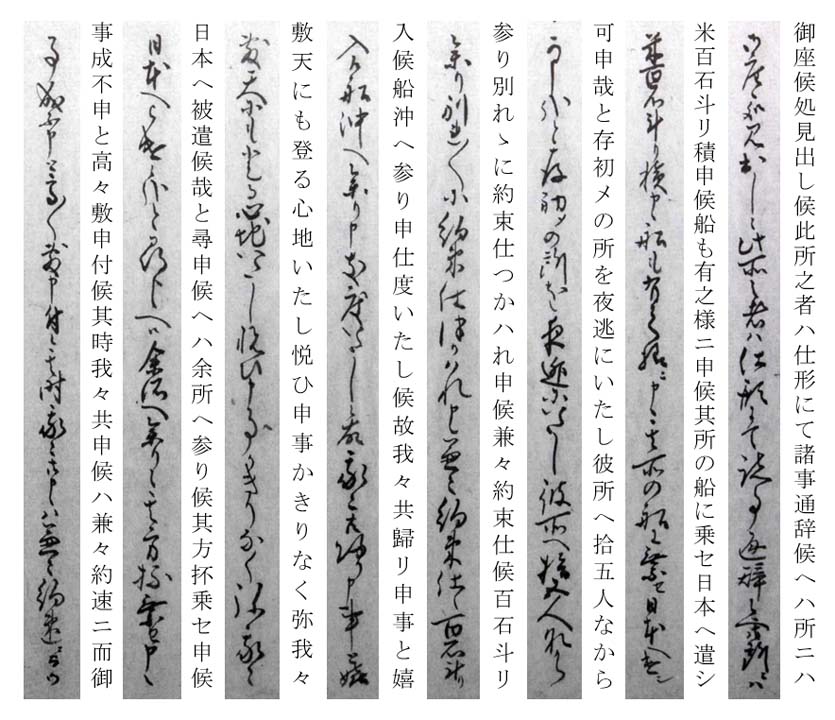 御座候処見出し候此所之者ハ仕形にて諸事通辞候へハ所ニハ
米百石斗リ積申候船も有之様ニ申候其所の船に乗セ日本へ遣シ
可申哉と存初メの所を夜逃にいたし彼所へ拾五人なから
参り別れゝに約束仕つかハれ申候兼々約束仕候百石斗リ
入候船沖へ参り申仕度いたし候故我々共歸リ申事と嬉
敷天にも登る心地いたし悦ひ申事かきりなく弥我々
日本へ被遣候哉と尋申候へハ余所へ参り候其方抔乗セ申候
事成不申と高々敷申付候其時我々共申候ハ兼々約速ニ而御